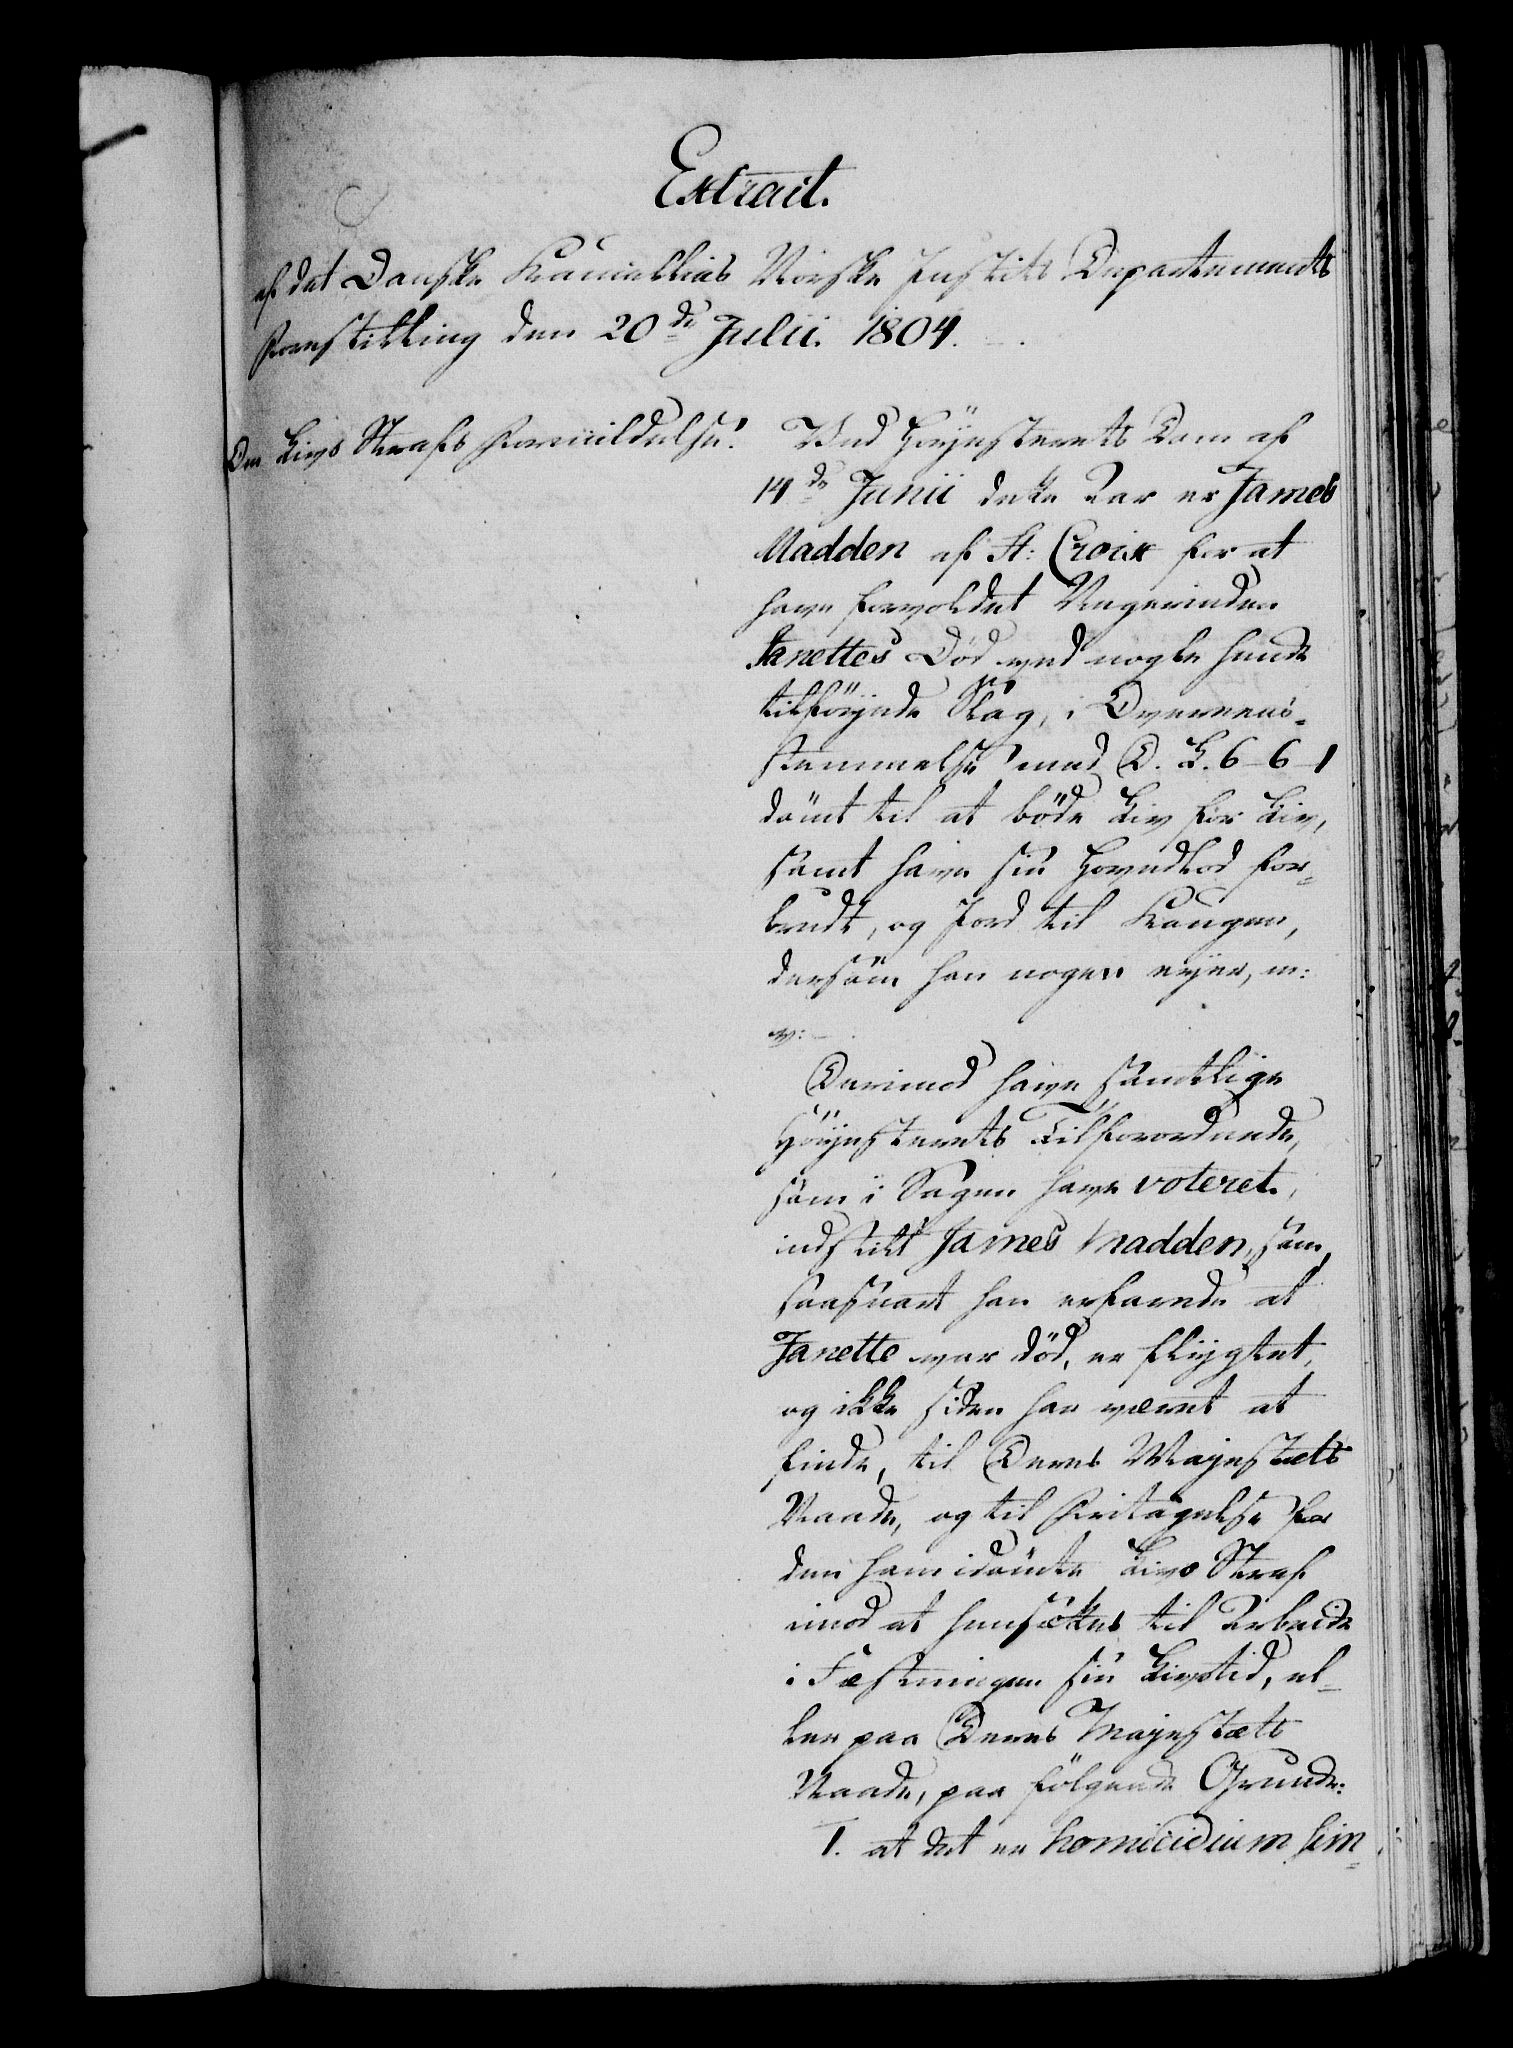 Extrait.
af det Danske Kancellies Norske Justits Departements
Forestilling den 20de Julii. 1804.
Om Livs Strafs Formildelse.
Ved Høyesterets Dom af
14de Junii dette Aar er James
Madden af St: Croix for at
have forvoldet Negerinden
Janettes Død ved nogle hende
tilføyede Slag, i Overeens-
stemmelse med D. L. 6-6-1
dømt til at bøde Liv for Liv,
samt have sin Hovedlod for-
brudt, og Jord til Kongen,
dersom han nogen eyer, m:
v:
Derimod have samtlige
Høyesterets Tilforordnede,
som i Sagen have voteret,
indstilt James Madden, som,
saasnart han erfarede at
Janette var død, er flygtet,
og ikke siden har været at
finde, til Deres Majestæts
Naade, og til Fritagelse for
den ham idømte Livs Straf
imod at hensættes til Arbeide
i Fæstningen sin Livstid, el-
ler paa Deres Majestæts
Naade, paa følgende Grunde:
1. at det er homicidium sim-